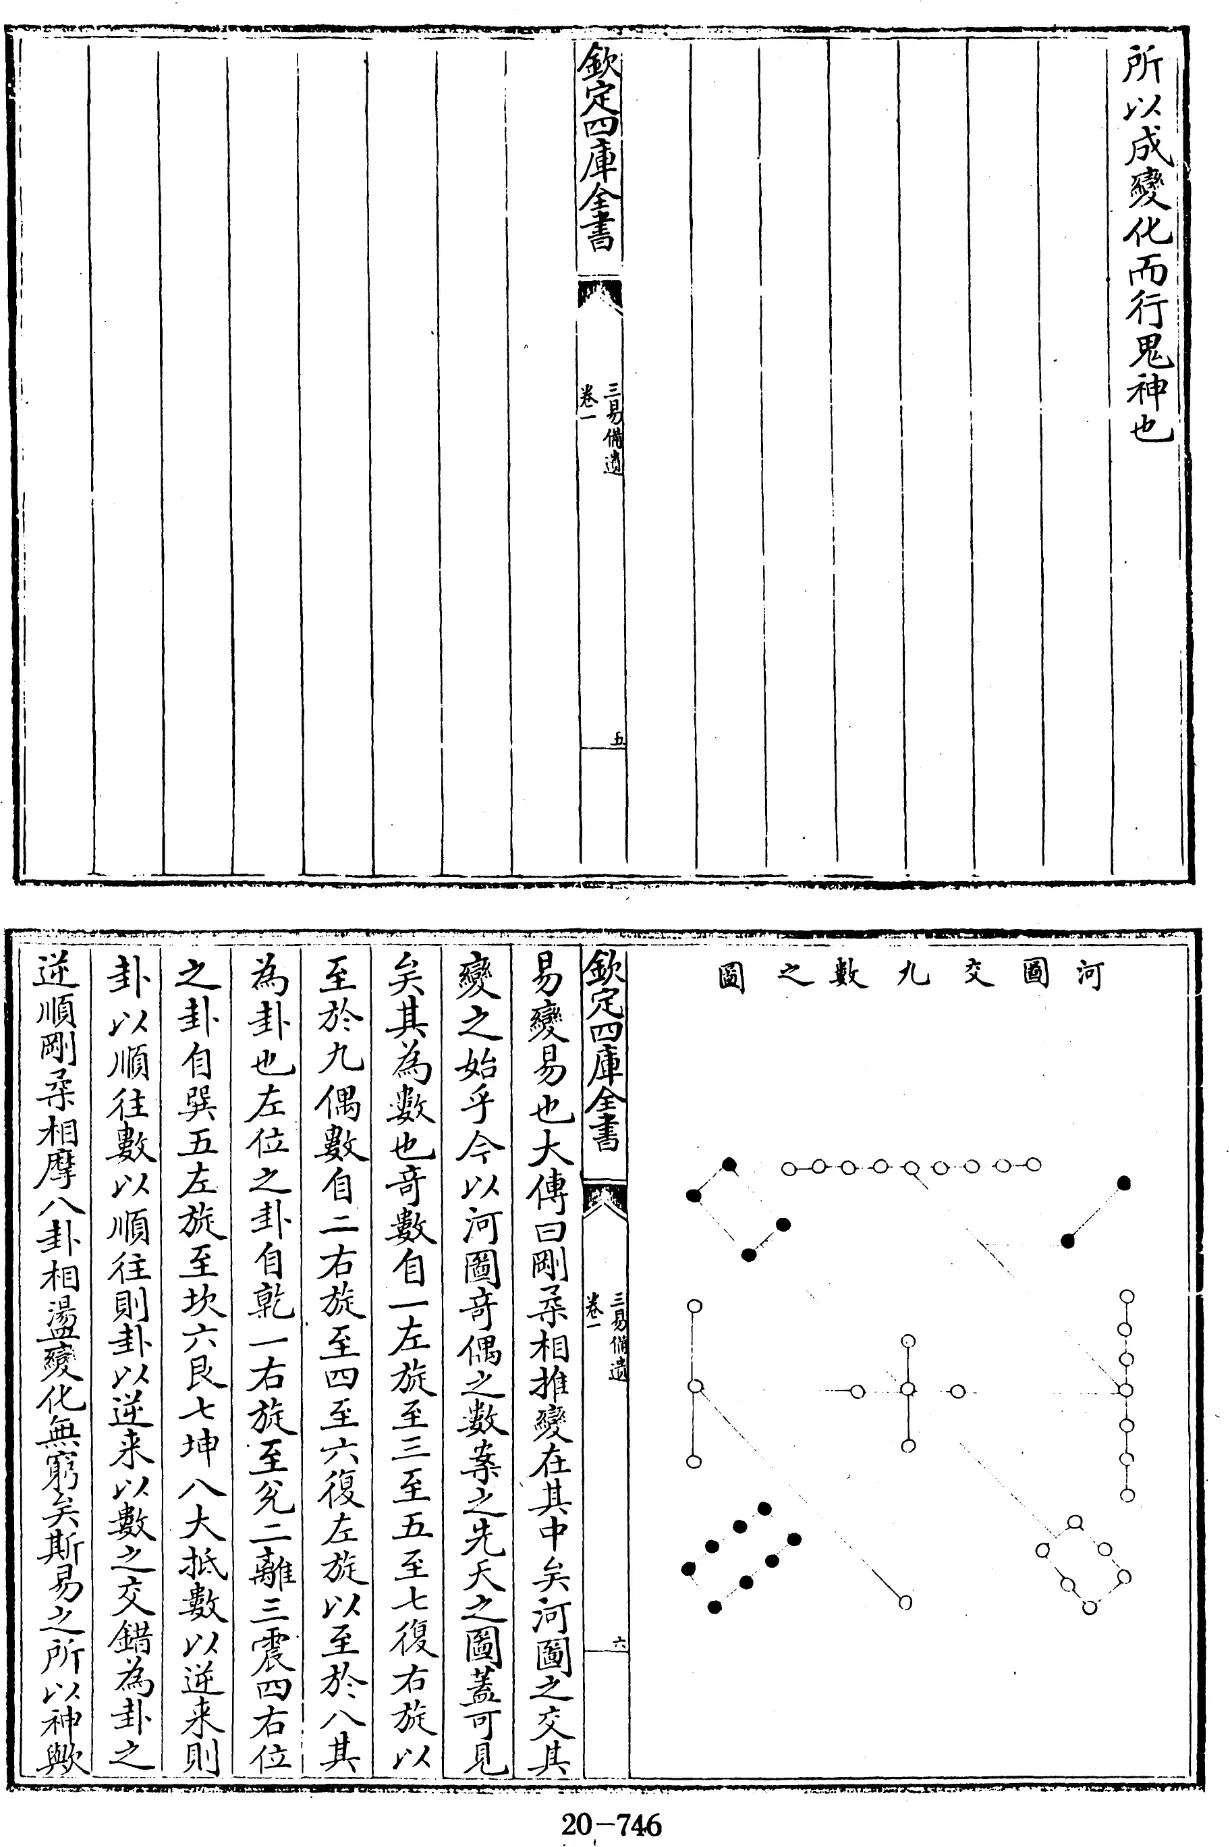 所以成變化而行鬼神也
欽定四庫全書
三易備遺
卷一
五
河圖交九數之圖
欽定四庫全書
三易備遺
卷一
六
易變易也大傳曰剛柔相推變在其中矣河圖之交其
變之始乎今以河圖奇偶之數案之先天之圖葢可見
矣其為數也奇數自一左旋至三至五至七復右旋以
至於九偶數自二右旋至四至六復左旋以至於八其
為卦也左位之卦自乾一右旋至兊二離三震四右位
之卦自巽五左旋至坎六艮七坤八大抵數以逆来則
卦以順往數以順往則卦以逆来以數之交錯為卦之
逆順剛柔相摩八卦相盪變化無窮矣斯易之所以神歟
20-746